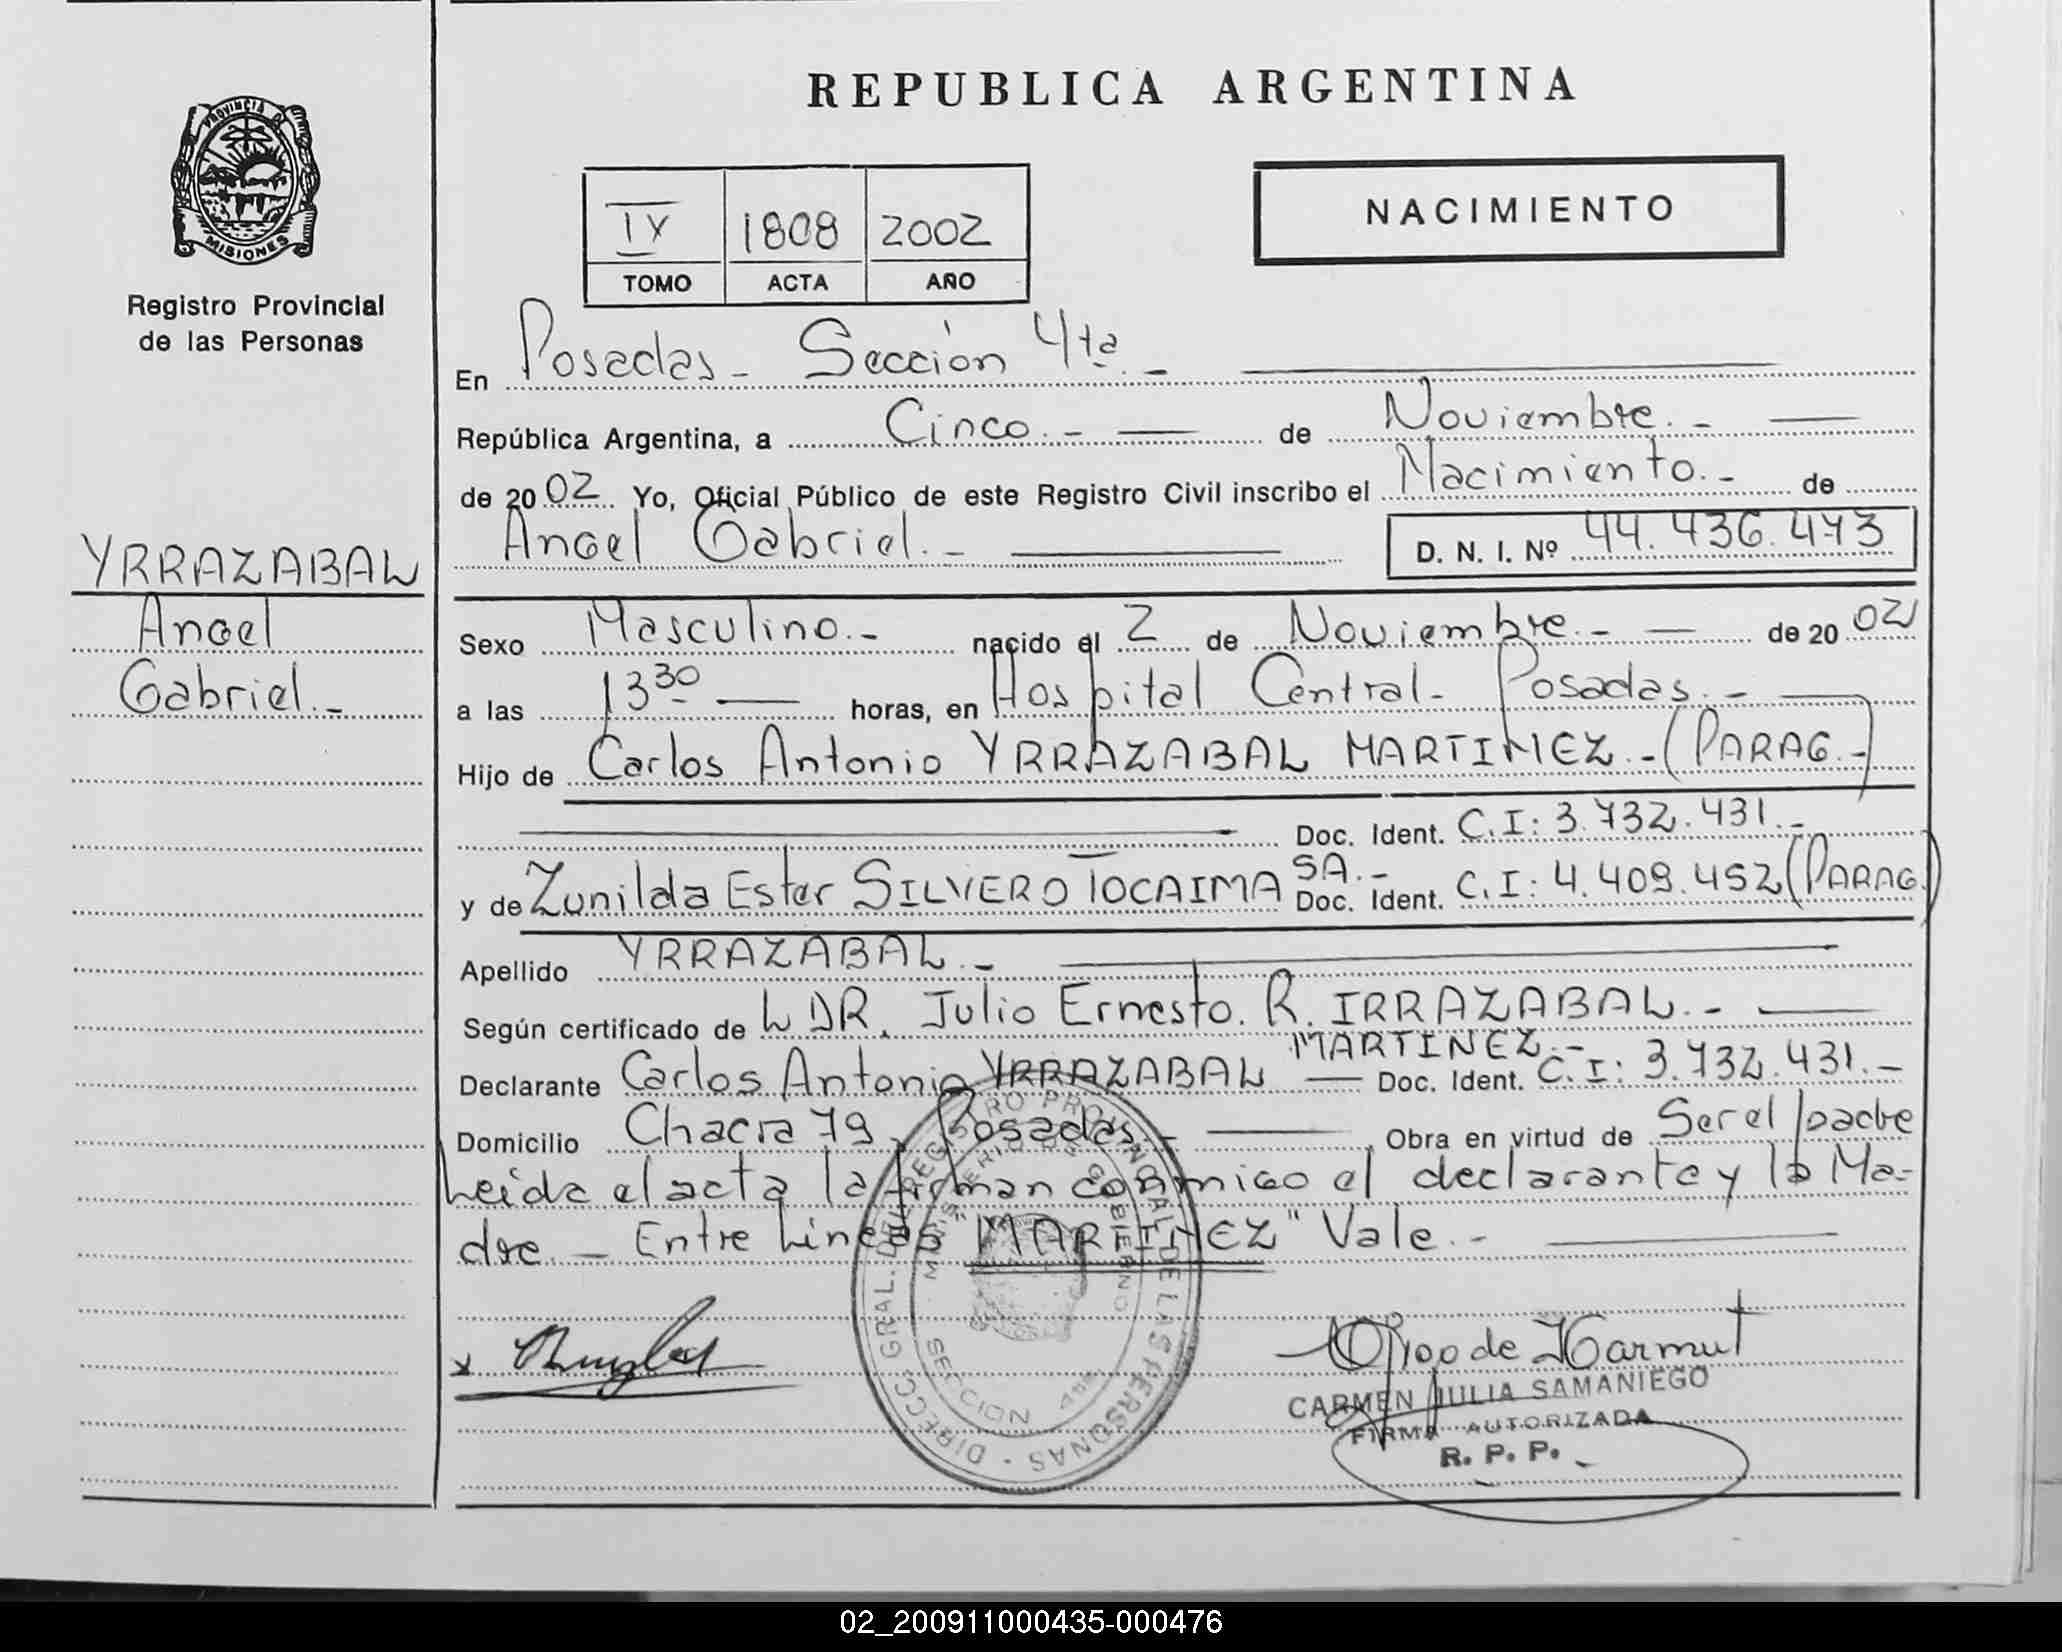 REPUBLICA ARGENTINA
PROVINCIA DE
MISIONES
Registro Provincial
de las Personas
IV 1808 2002
TOMO ACTA AÑO
NACIMIENTO
En Posadas - Sección 4ta. -
República Argentina, a Cinco. - de Noviembre. -
de 2002 Yo, Oficial Público de este Registro Civil inscribo el Nacimiento. - de
Angel Gabriel. - D. N. I. Nº 44.436.473
YRRAZABAL
Angel
Gabriel. -
Sexo Masculino. - nacido el 2 de Noviembre. - de 2002
a las 13 30 horas, en Hospital Central - Posadas. -
Hijo de Carlos Antonio YRRAZABAL MARTINEZ. - (PARAG. -)
Doc. Ident. C.I: 3.732.431. -
y de Zunilda Ester SILVERO TOCAIMASA. - Doc. Ident. C.I: 4.409.452 (PARAG.)
Apellido YRRAZABAL. -
Según certificado de L DR. Julio Ernesto. R. IRRAZABAL. -
Declarante Carlos Antonio YRRAZABAL MARTINEZ. - Doc. Ident. C.I: 3.732.431. -
Domicilio Chacra 79, Posadas. - , Obra en virtud de Ser el padre
Leida el acta la firman conmigo el declarante y la Ma-
dre. - Entre Lineas "MARTINEZ" Vale. -
DIRECC. GRAL. DEL REGISTRO PROVINCIAL DE LAS PERSONAS
MINISTERIO DE GOBIERNO
SECCION 4ta.
x
CARMEN JULIA SAMANIEGO
FIRMA AUTORIZADA
R. P. P.
02_200911000435-000476